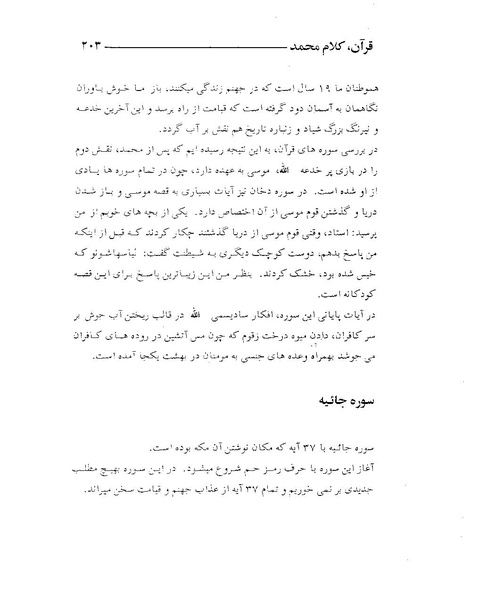 قرآن، کلام محمد ۲۰۳
هموطنان ما ۱۹ سال است که در جهنم زندگی میکنند، باز ما خوش باوران
نگاهمان به آسمان دود گرفته است که قیامت از راه برسد و این آخرین خدعه
و نیرنگ بزرگ شیاد و زنباره تاریخ هم نقش بر آب گردد.
در بررسی سوره های قرآن، به این نتیجه رسیده ایم که پس از محمد، نقش دوم
را در بازی پر خدعه الله، موسی به عهده دارد، چون در تمام سوره ها یادی
از او شده است. در سوره دخان نیز آیات بسیاری به قصه موسی و باز شدن
دریا و گذشتن قوم موسی از آن اختصاص دارد. یکی از بچه های خوبم از من
پرسید: استاد، وقتی قوم موسی از دریا گذشتند چکار کردند که قبل از اینکه
من پاسخ بدهم، دوست کوچک دیگری به شیطنت گفت: لباسهاشونو که
خیس شده بود، خشک کردند. بنظر من این زیباترین پاسخ برای این قصه
کودکانه است.
در آیات پایانی این سوره، افکار سادیسمی الله در قالب ریختن آب جوش بر
سر کافران، دادن میوه درخت زقوم که چون مس آتشین در روده های کافران
می جوشد بهمراه وعده های جنسی به مومنان در بهشت یکجا آمده است.
سوره جاثیه
سوره جاثیه با ۳۷ آیه که مکان نوشتن آن مکه بوده است.
آغاز این سوره با حرف رمز حم شروع میشود. در این سوره بهیچ مطلب
جدیدی بر نمی خوریم و تمام ۳۷ آیه از عذاب جهنم و قیامت سخن میراند.